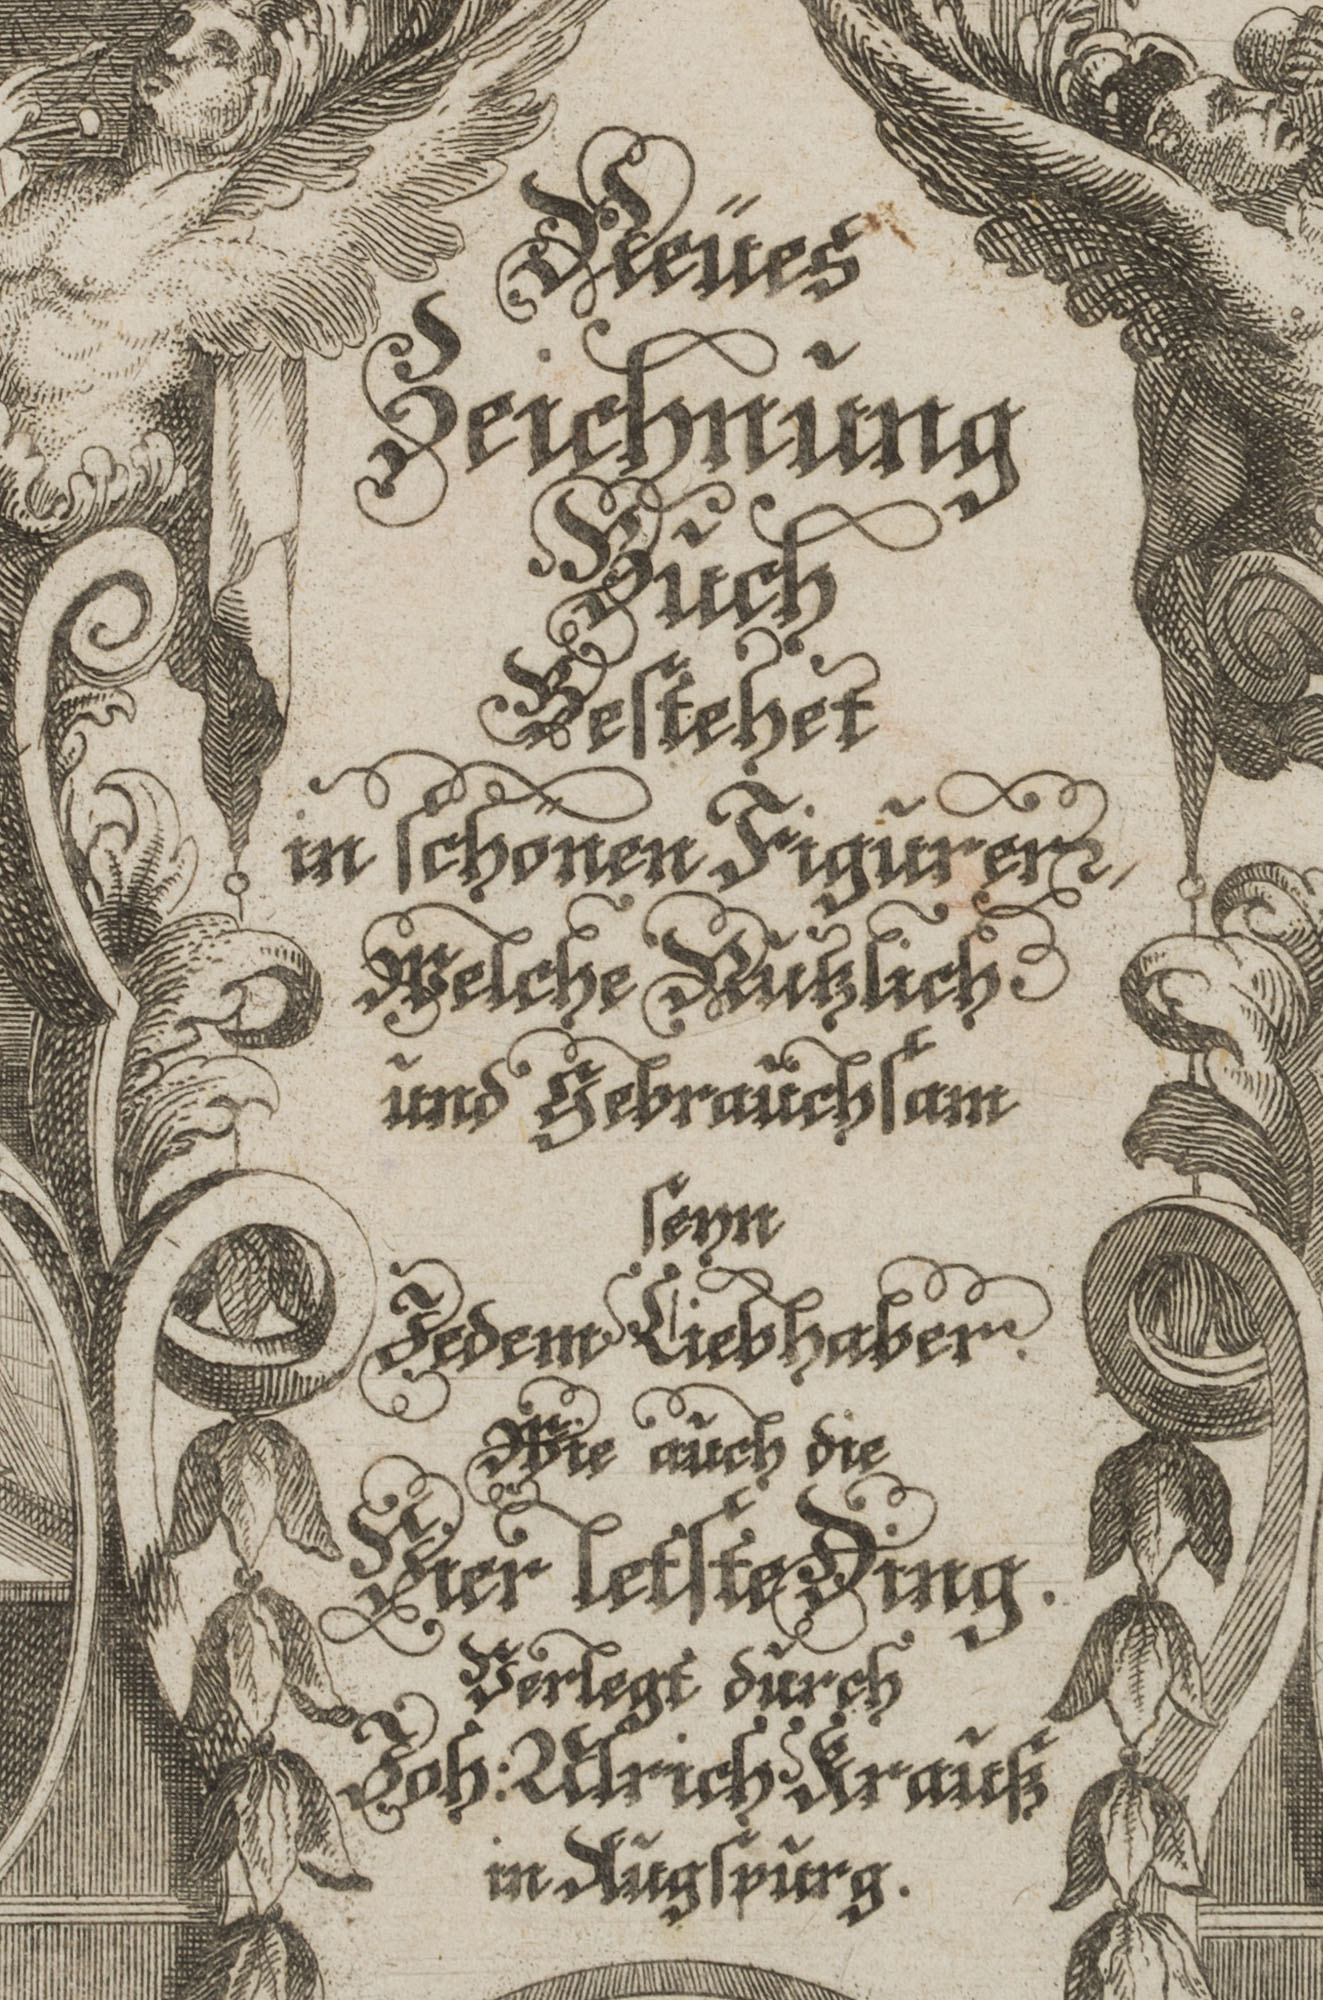 Neües
Zeichnung
Buch
Bestehet
in schönen Figuren,
Welche Nutzlich
und Gebrauchsam
seyn
Jedem Liebhaber.
Wie auch die
Vier letste Ding.
Verlegt durch
Joh: Ulrich Krauß
in Augspurg.